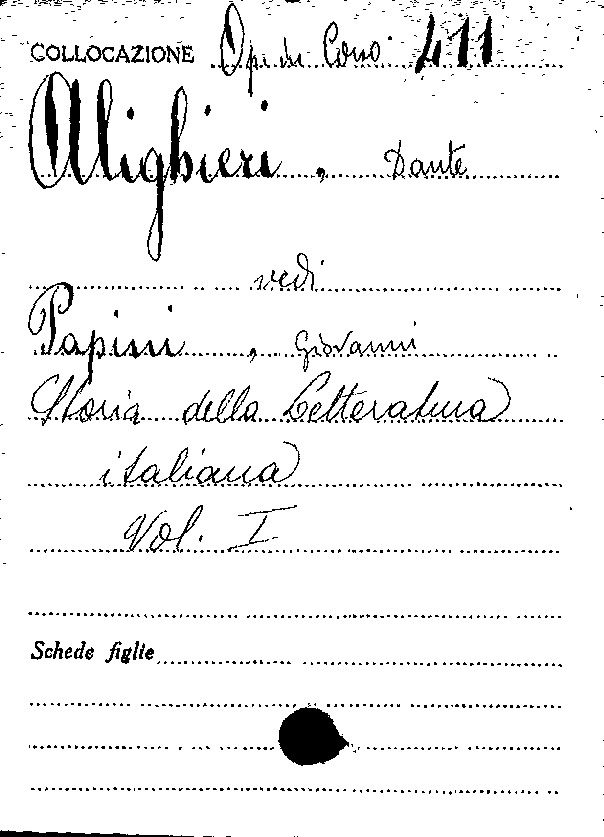 COLLOCAZIONE Op. in Corso 411
Alighieri, Dante
vedi
Papini, Giovanni
Storia della Letteratura
italiana
Vol. I
Schede figlie